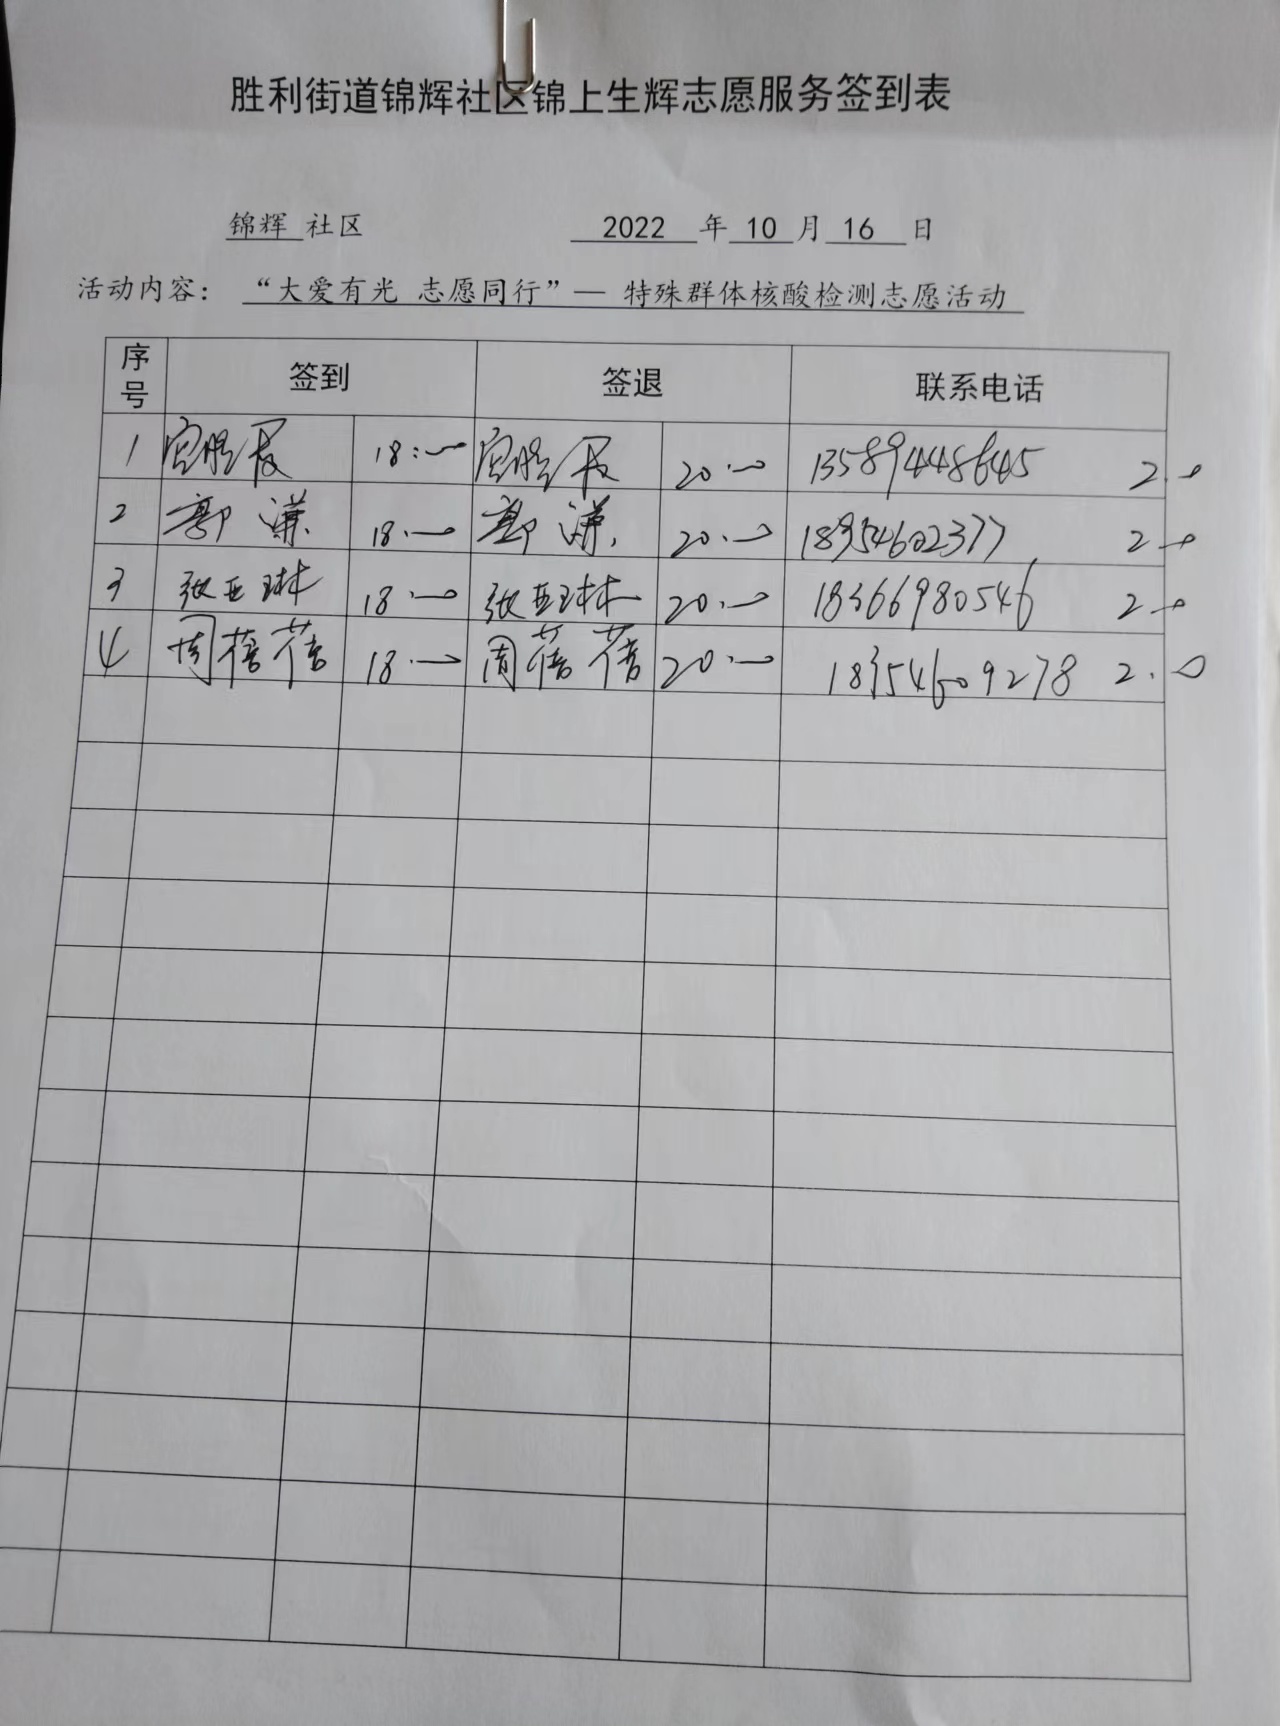 胜利街道锦辉社区锦上生辉志愿服务签到表
锦辉 社区 2022 年 10 月 16 日
活动内容： “大爱有光 志愿同行”— 特殊群体核酸检测志愿活动
序号 签到 签退 联系电话
1 18:00 20:00 13589448645 2.0
2 郭谦 18:00 郭谦 20:00 18954602377 2.0
3 张亚琳 18:00 张亚琳 20:00 18366980546 2.0
4 周蓓蓓 18:00 周蓓蓓 20:00 18354609278 2.0